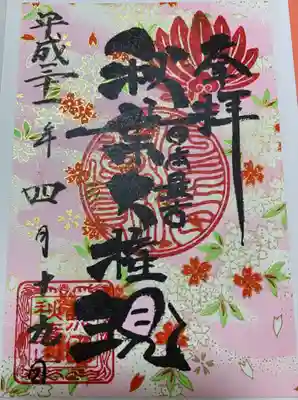 奉拝
秋葉大権現
平成三十一年四月十九日